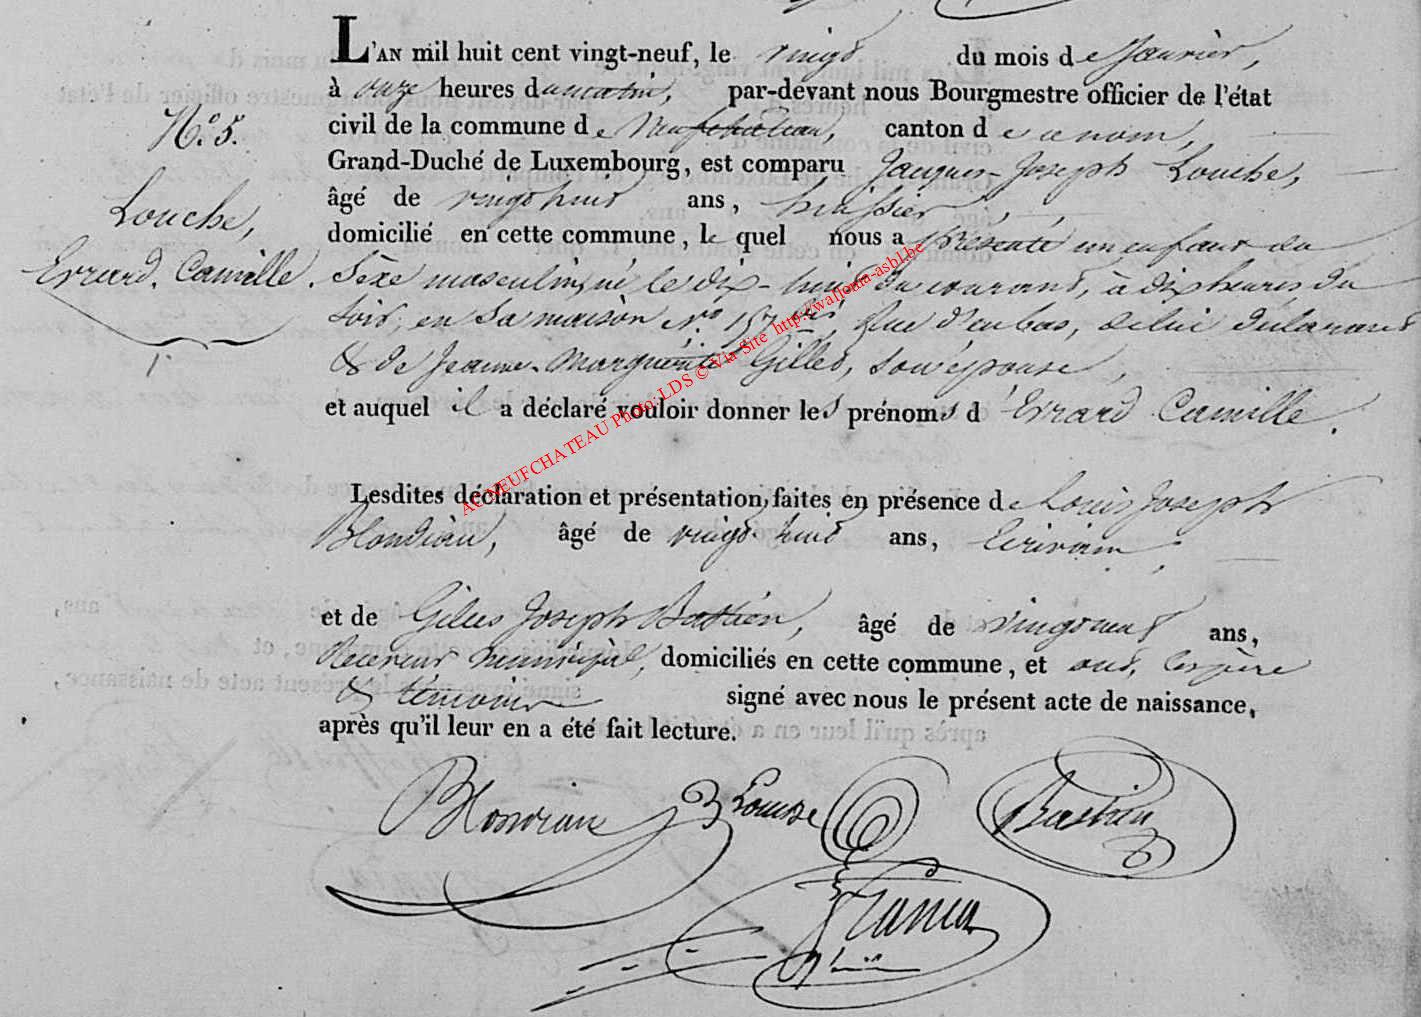 L'AN mil huit cent vingt-neuf, le vingt du mois de Janvier,
à onze heures du matin, par-devant nous Bourgmestre officier de l'état
N.o 5. civil de la commune de Neufchateau, canton de ce nom,
Grand-Duché de Luxembourg, est comparu Jacques-Joseph Louche,
Louche, âgé de vingt huit ans, huissier,
domicilié en cette commune, le quel nous a présenté un enfant du
Errard. Camille. Sèxe masculin, né le dix-huit du courant, à dix heures du
soir, en sa maison N.o 157 bis, Rue d'enbas, de lui déclarant
& de Jeanne-Marguerite Gilles, son épouse,
et auquel il a déclaré vouloir donner les prénoms d'Errard Camille.
Lesdites déclaration et présentation, faites en présence de Louis Joseph
Blondiau, âgé de vingt huit ans, Ecrivain,
et de Gilles Joseph Bastien, âgé de vingt neuf ans,
Receveur municipal, domiciliés en cette commune, et ont, les père
& témoins signé avec nous le présent acte de naissance,
après qu'il leur en a été fait lecture.
Blondiau Louche Bastien
AC NEUFCHATEAU Photo: LDS © Via Site http://wallonia-asbl.be